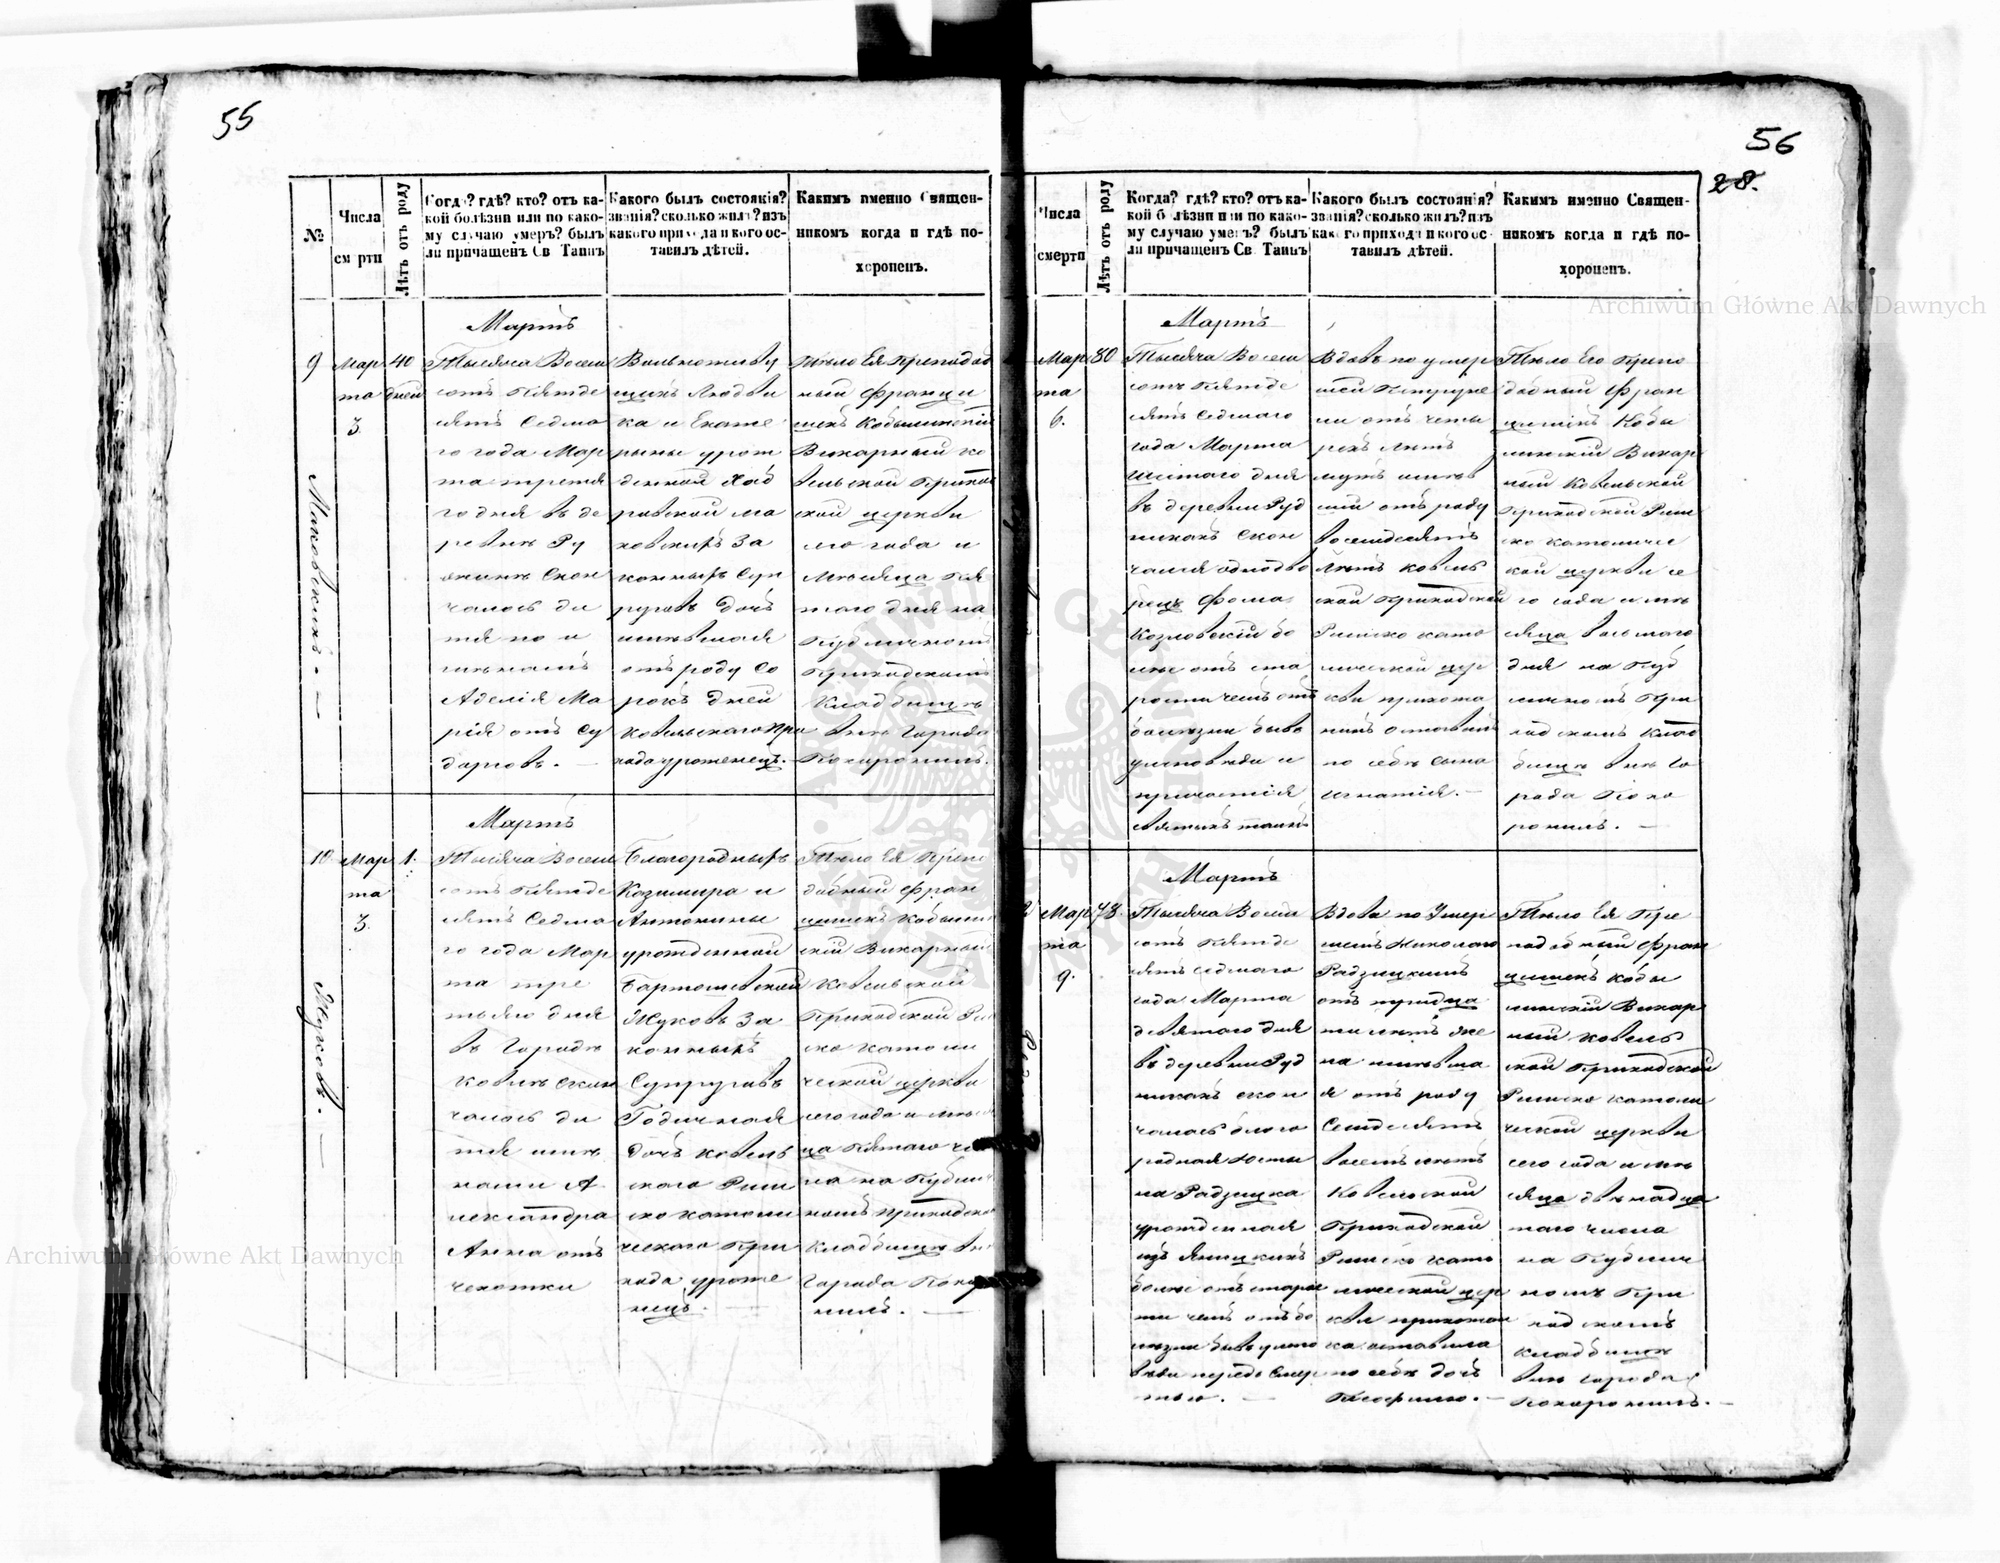 55
№
Числа
см рти
Лѣтъ отъ роду
Когда? гдѣ? кто? отъ ка-
кой болѣзни или по како-
му случаю умеръ? былъ
ли причащенъ Св Таинъ
Какого былъ состоянія?
званія? сколько жилъ? изъ
какого прихода и кого ос-
тавилъ дѣтей.
Какимъ именно Священ-
никомъ когда и гдѣ по-
хороненъ.
Мартъ
9
Мар
та
3.
40
дней
Маковскихъ. —
Тысяча Восем
сотъ Пятьде
сятъ Седьма
го года Мар
та третья
го дня въ де
ревнѣ Ру
скон
чалось ди
тя по и
Аделія Ма
рія отъ су
дорговъ. —
щикъ Людви
ка и Екате
рины урож
денной
ровской Ма
ковскихъ За
конныхъ Суп
руговъ дочь
имѣвшая
отъ роду со
рокъ дней
Ковельскаго При
хода уроженецъ. —
Тѣло Ея Преподоб
ный Франци
шекъ Кобылинскій
Викарный Ко
вельской Приход
ской церкви
сего года и
Мѣсяца Пя
таго дня на
Публичномъ
Приходскомъ
Кладбищѣ
внѣ Города
Похоронилъ.
Мартъ
10
Мар
та
3.
1.
Жуковъ. —
Тысяча Восем
сотъ Пятьде
сятъ Седьма
го года Мар
та тре
тьяго дня
въ Городѣ
Ковлѣ скон
чалось ди
тя име
нами А
лександра
Анна отъ
чехотки
Благородныхъ
Казимира и
Антонины
урожденной
Бартошевской
Жуковъ За
конныхъ
Супруговъ
Годичная
дочь Ковель
скаго Рим
ско католи
ческаго При
хода уроже
нецъ. —
Тѣло Ея Препо
добный Фран
цишекъ Кобылин
скій Викарный
Ковельской
Приходской Рим
ско католи
ческой церкви
сего года и мѣся
ца Пятаго чис
ла на Публич
номъ Приходско
Кладбищѣ внѣ
Города Похо
нилъ. —
56
28.
Числа
смерти
Лѣтъ отъ роду
Когда? гдѣ? кто? отъ ка-
кой болѣзни или по како-
му случаю умеръ? былъ
ли причащенъ Св Таинъ
Какого былъ состоянія?
званія? сколько жилъ? изъ
какого прихода и кого ос-
тавилъ дѣтей.
Какимъ именно Священ-
никомъ когда и гдѣ по-
хороненъ.
Мартъ
Мар
та
6.
80
Тысяча Восем
сотъ Пятьде
сятъ Седьмаго
года Марта
шестаго дня
въ деревни Руд
никахъ Скон
чался однодво
рецъ Фома
Козловскій бо
лѣе отъ ста
рости чемъ отъ
болезни бывъ
исповѣди и
причастія
святыхъ таинъ
Вдовъ по умер
шей
ни отъ четы
рехъ лѣтъ
мужъ имѣв
шій отъ роду
восемдесятъ
Лѣтъ Ковель
ской Приходской
Римско като
лической цер
кви прихожа
нинъ оставилъ
по себѣ сына
Игнатія. —
Тѣло Его Препо
добный Фран
цишекъ Кобы
линскій Викар
ный Ковельской
Приходской Рим
ско католичес
кой церкви се
го года и мѣ
сяца восьмаго
дня на Пуб
личномъ При
ходскомъ Клад
бищѣ внѣ Го
рода Похо
ронилъ. —
Мартъ
Мар
та
9.
78.
Тысяча Восем
сотъ Пятьде
сятъ седьмаго
года Марта
девятаго дня
въ деревни Руд
никахъ скон
чалась благо
родная Юсти
на Радзицка
урожденная
изъ
болѣе отъ старос
ти чемъ отъ бо
лѣзни бывъ испо
вѣди передъ Смер
тью. —
Вдова по Умер
шемъ Николаю
Радзицкимъ
отъ тридца
ти лѣтъ же
на имѣвша
я отъ роду
Семдесятъ
восемъ лѣтъ
Ковельской
Приходской
Римско като
лической цер
кви прихожан
ка оставила
по себѣ дочь
Теофилю. —
Тѣло Ея Пре
подобный Фран
цишекъ Кобы
линскій Викар
ный Ковель
ской Приходской
Римско католи
ческой церкви
сего года и мѣ
сяца двѣнадца
таго числа
на Публич
номъ При
ходскомъ
кладбищѣ
внѣ города
Похоронилъ. —
Archiwum Główne Akt Dawnych
Archiwum Główne Akt Dawnych